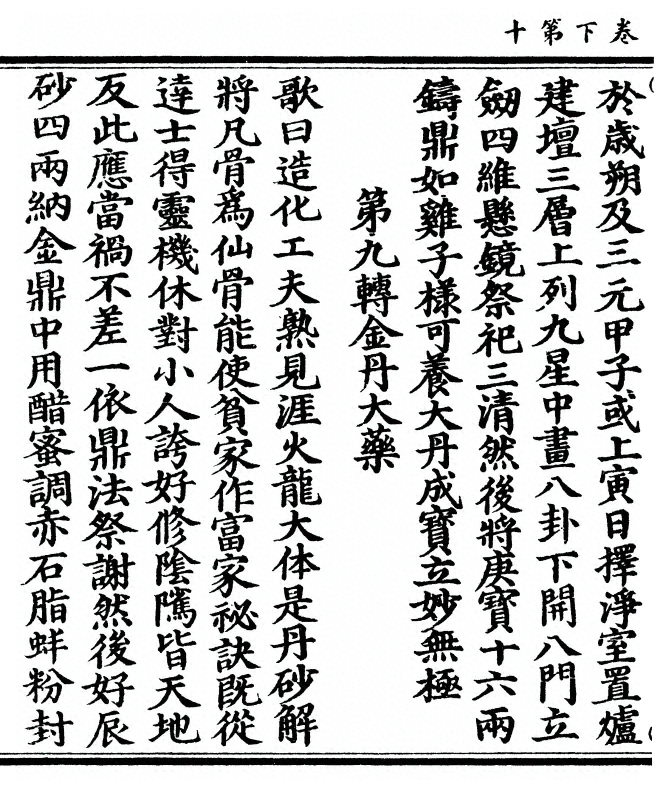 卷下第十
於歲朔及三元甲子或上寅日擇淨室置爐
建壇三層上列九星中畫八卦下開八門立
劒四維懸鏡祭祀三清然後將庚寶十六兩
鑄鼎如雞子樣可養大丹成寶立妙無極
第九轉金丹大藥
歌曰造化工夫熟見涯火龍大体是丹砂解
將凡骨爲仙骨能使貧家作富家祕訣既從
達士得靈機休對小人誇好修陰隲皆天地
反此應當禍不差一依鼎法祭謝然後好辰
砂四兩納金鼎中用醋蜜調赤石脂蚌粉封